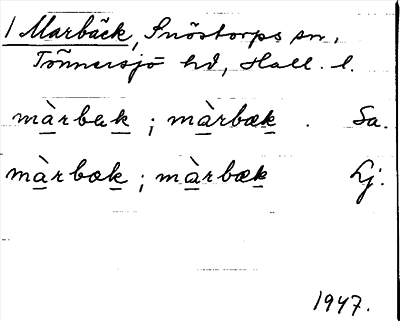 1 Marbäck, Snöstorps sn,
Tönnersjö hd, Hall. l.
màrbæk ; màrbæk . Sa.
màrbæk ; màrbæk Lj.
1947.